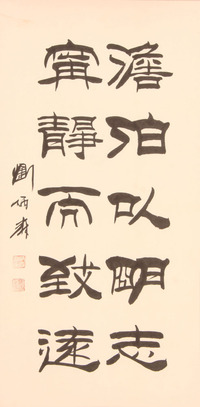 澹泊以明志
寧靜而致遠
劉炳森